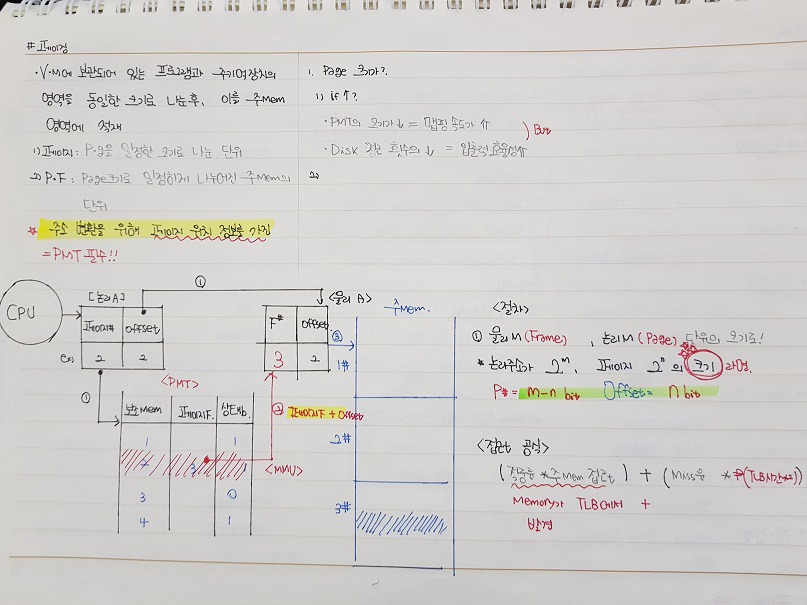 # 페이징
· V·M에 보관되어 있는 프로그램과 주기억장치의
영역을 동일한 크기로 나눈후, 이를 주Mem
영역에 적재
1) 페이지 : P·g을 일정한 크기로 나눈 단위
2) P·F : Page크기로 일정하게 나누어진 주Mem의
단위
* 주소 변환을 위해 페이지 위치 정보를 가짐
= PMT 필수!!
1. Page 크기?
1) if ↑?
· PMT의 크기가↓ = 맵핑 속도가 ↑
· Disk 접근 횟수의 ↓ = 입출력 효율성↑
) But
2)
CPU
[논리A]
페이지# offset
ex) 2 2
①
<물리 A>
F# offset
3 2
③
주Mem.
1#
2#
3#
①
<PMT>
보조Mem 페이지F. 상태b.
1 1
2 3
3 0
4 1
② 페이지F + Offset
<MMU>
<절차>
① 물리M (Frame) , 논리M (Page) 단위의 크기로!
* 논리주소가 2^m, 페이지 2^n 의 크기 라면.
P# = m-n bit Offset = n bit
<접근 공식>
(적중률 * 주Mem 접근) + (Miss율 *
Memory가 TLB에서 +
발견